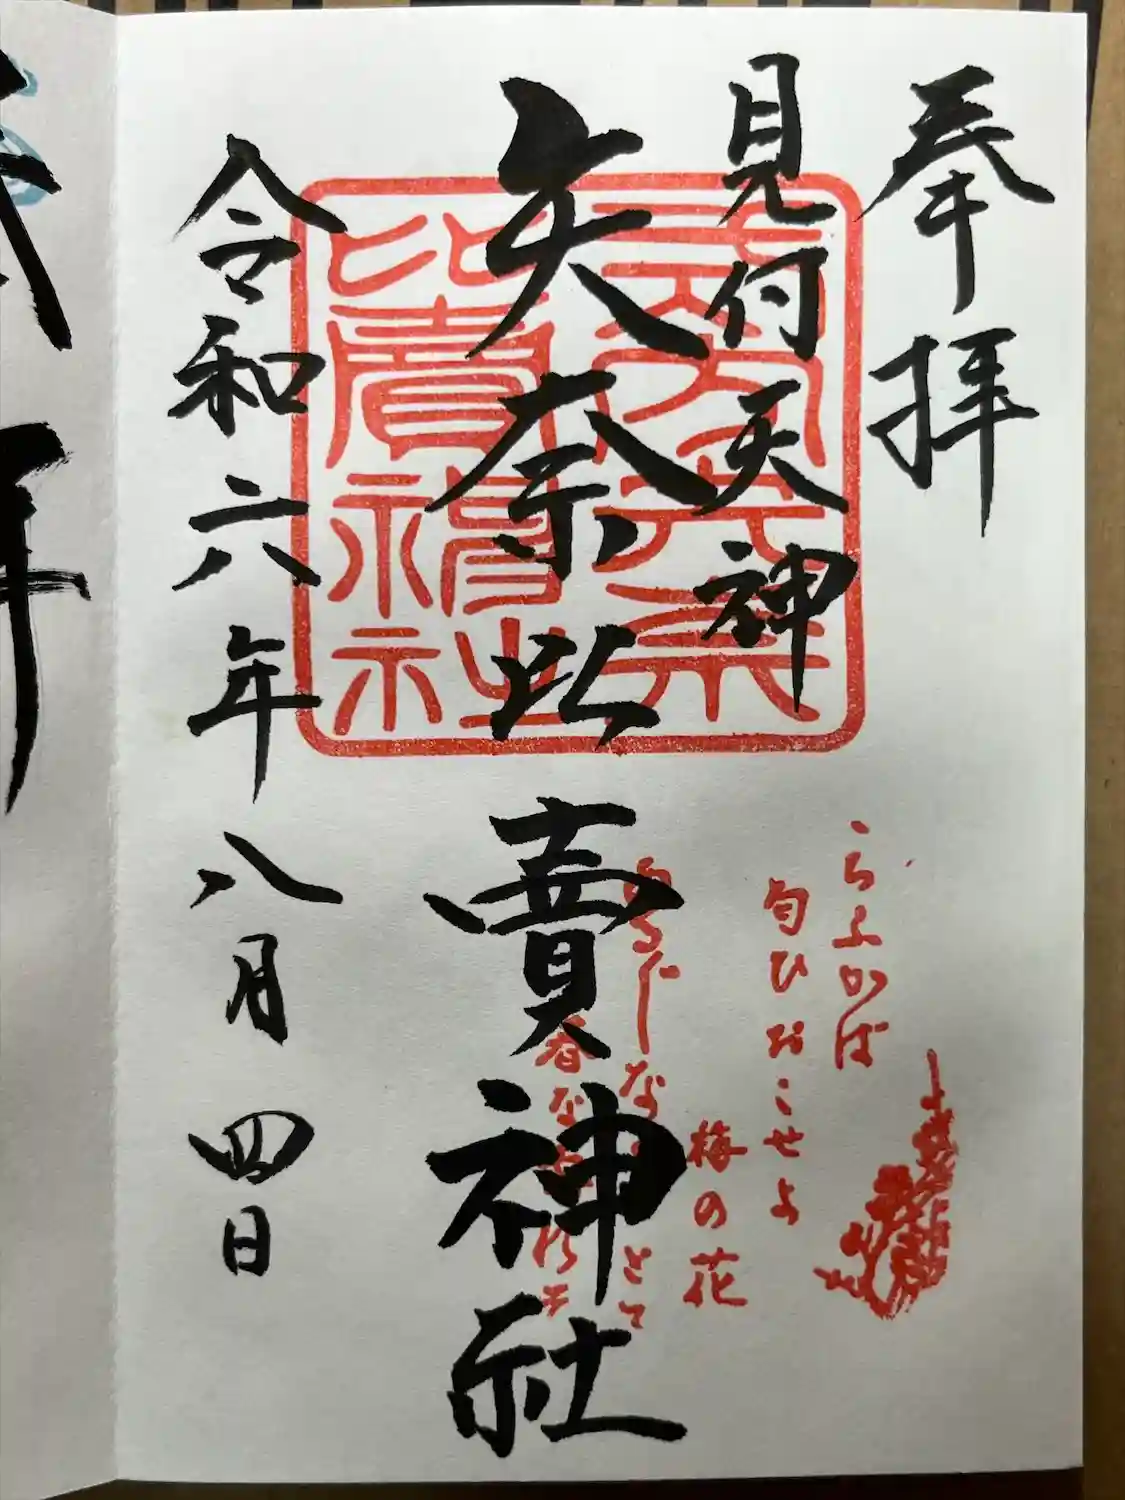 奉拝
見付天神
矢奈比賣神社
令和六年八月四日
こちふかば
匂ひおこせよ
梅の花
あるじなしとて
春なわすれそ